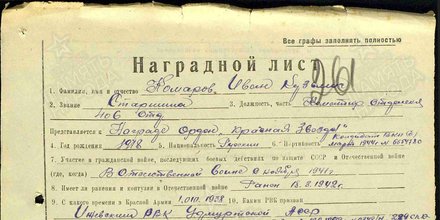 Все графы заполнять полностью
Наградной лист
261
1. Фамилия, имя и отчество Комаров Иван Кузьмич
2. Звание Старшина 3. Должность, часть отделения
406
Представляется к Награде Орден „Красная Звезда"
4. Год рождения 5. Национальность Русский 6. Партийность
7. Участие в гражданской войне, последующих боевых действиях по защите СССР и Отечественной войне
где, когда) В Отечественной Войне с ноября 1941г
8. Имеет ли ранения и контузии в Отечественной войне Ранен
9. С какого времени в Красной Армии 10. Каким РВК призван
Ижевским РВК Удмуртской АССР